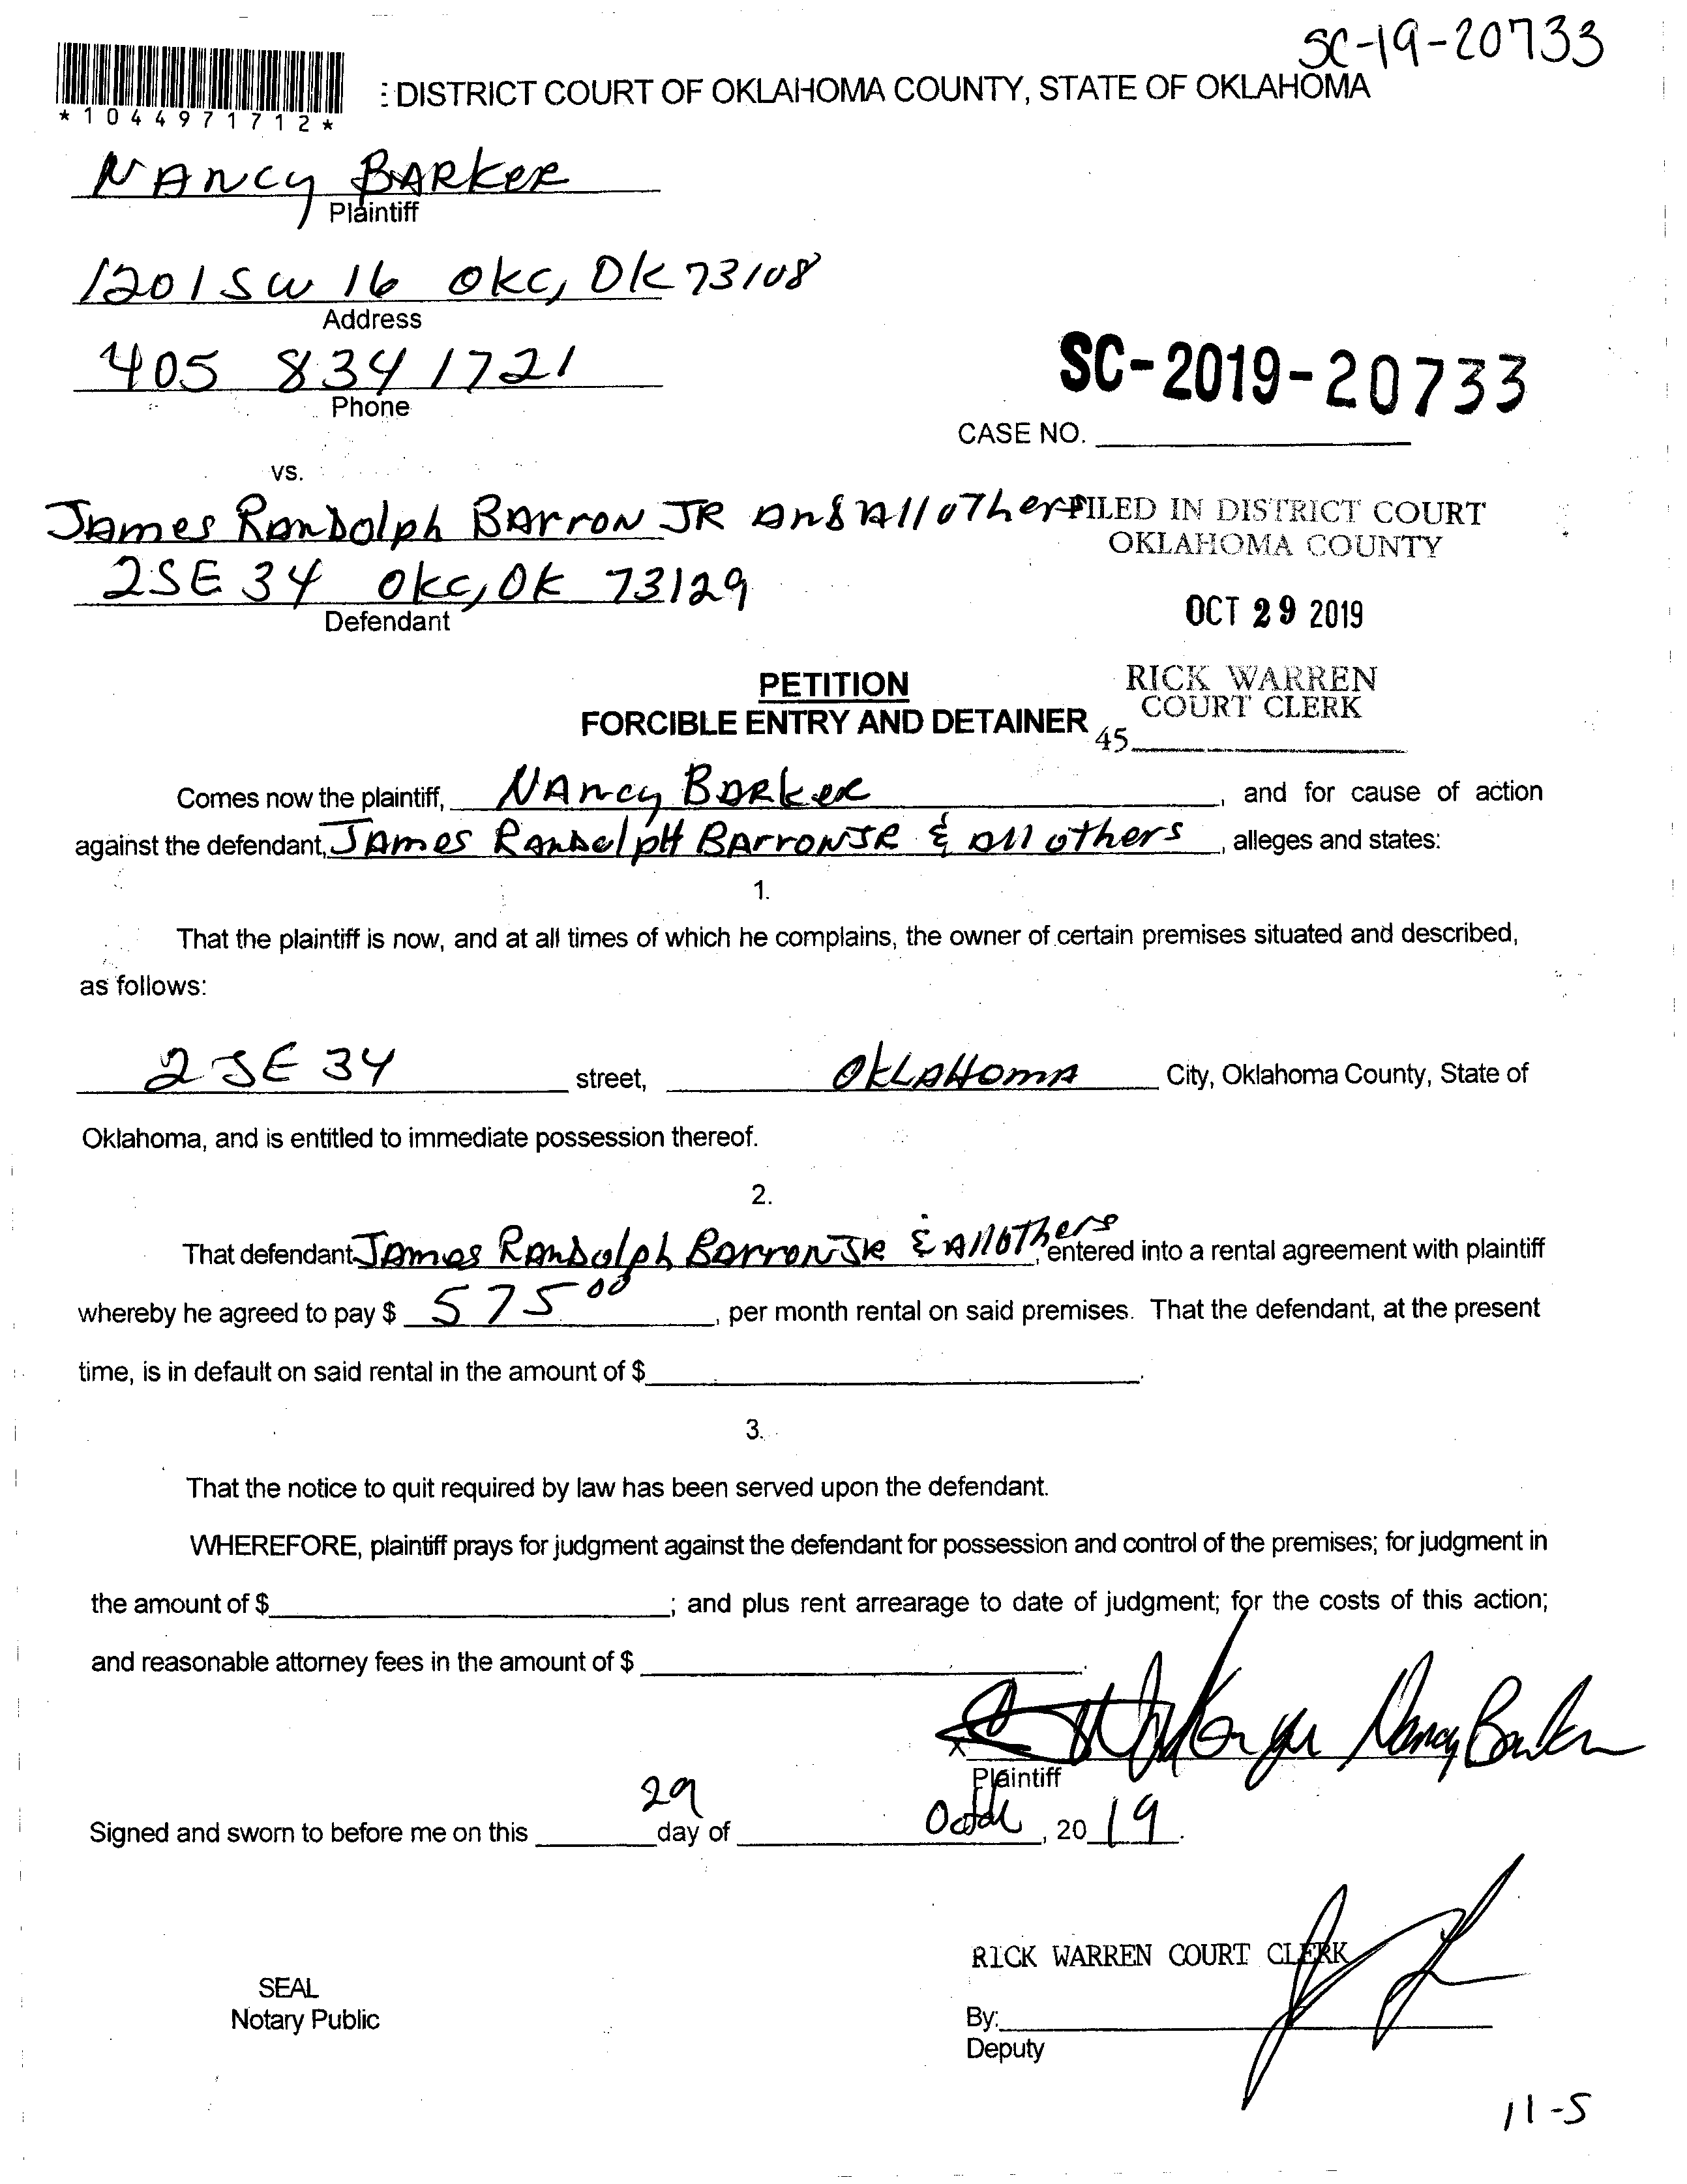 SC-19-20733
: DISTRICT COURT OF OKLAHOMA COUNTY, STATE OF OKLAHOMA
*1044971712*
NANCY BARKER
Plaintiff
1201 SW 16 OKC, OK 73108
Address
405 834 1721
Phone
SC-2019-20733
CASE NO.
vs.
James Randolph Barron JR and All other
FILED IN DISTRICT COURT
OKLAHOMA COUNTY
2 SE 34 OKC, OK 73129
Defendant
OCT 29 2019
PETITION
RICK WARREN
COURT CLERK
FORCIBLE ENTRY AND DETAINER
45
Comes now the plaintiff, Nancy Barker, and for cause of action
against the defendant, James Randolph Barron JR & All others, alleges and states:
1.
That the plaintiff is now, and at all times of which he complains, the owner of certain premises situated and described,
as follows:
2 SE 34 street, OKLAHOMA City, Oklahoma County, State of
Oklahoma, and is entitled to immediate possession thereof.
2.
That defendant James Randolph Barron JR & All Others, entered into a rental agreement with plaintiff
whereby he agreed to pay $ 575 00, per month rental on said premises. That the defendant, at the present
time, is in default on said rental in the amount of $ .
3.
That the notice to quit required by law has been served upon the defendant.
WHEREFORE, plaintiff prays for judgment against the defendant for possession and control of the premises; for judgment in
the amount of $ ; and plus rent arrearage to date of judgment; for the costs of this action;
and reasonable attorney fees in the amount of $ .
X Nancy Barker
Plaintiff
Signed and sworn to before me on this 29 day of , 20 19.
RICK WARREN COURT CLERK
SEAL
Notary Public
By:
Deputy
11-5